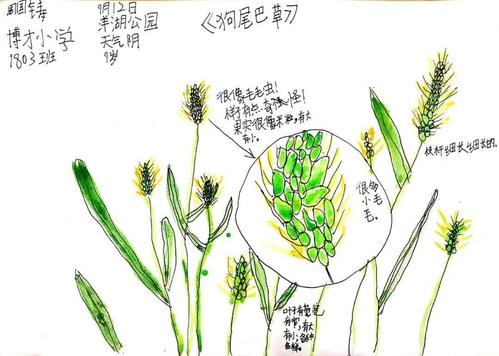 周国铸
博才小学
1803班
9月12日
洋湖公园
天气阴
9岁
《狗尾巴草》
很像毛毛虫！
样子有点奇怪！
果实很像米粒，有大
有小。
很多
小毛
毛。
枝杆细长细长的。
叶子有宽
有窄，有大
有小